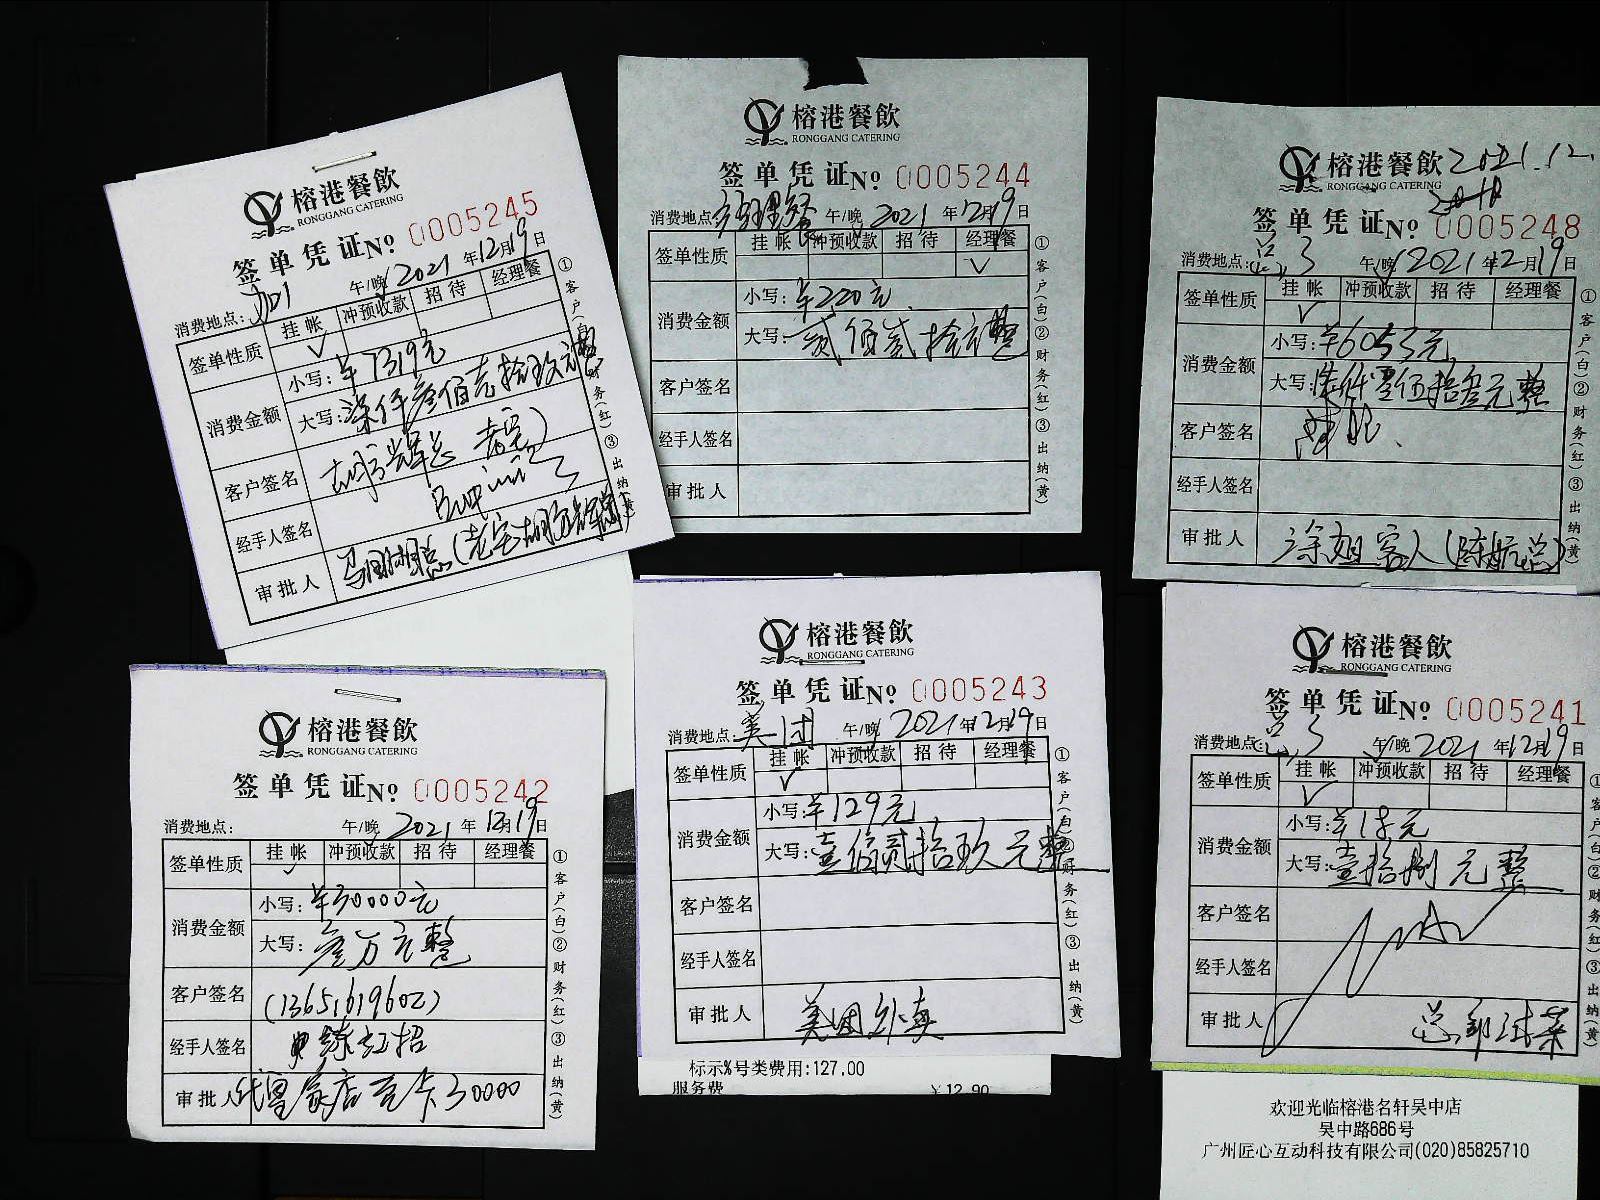 榕港餐飲
RONGGANG CATERING
签单凭证 No 0005245
消费地点: 午/晚 2021 年 12月19日
签单性质 挂帐 冲预收款 招待 经理餐
√
消费金额 小写: ¥7319元
大写: 柒仟叁佰壹拾玖元整
客户签名
经手人签名
审批人
①客户(白)②财务(红)③出纳(黄)
榕港餐飲
RONGGANG CATERING
签单凭证 No 0005244
消费地点: 经理餐 午/晚 2021 年 12月19日
签单性质 挂帐 冲预收款 招待 经理餐
√
消费金额 小写: ¥220元
大写: 贰佰贰拾元整
客户签名
经手人签名
审批人
①客户(白)②财务(红)③出纳(黄)
榕港餐飲 2021.12.
RONGGANG CATERING
签单凭证 No 0005248
消费地点: 总3 午/晚 2021 年 12月19日
签单性质 挂帐 冲预收款 招待 经理餐
√
消费金额 小写: ¥6053元
大写: 陆仟零伍拾叁元整
客户签名
经手人签名
审批人 涂姐客人(陈航总)
①客户(白)②财务(红)③出纳(黄)
榕港餐飲
RONGGANG CATERING
签单凭证 No 0005242
消费地点: 午/晚 2021 年 12月19日
签单性质 挂帐 冲预收款 招待 经理餐
√
消费金额 小写: ¥30000元
大写: 叁万元整
客户签名 (13651619602)
经手人签名
审批人 店充卡30000
①客户(白)②财务(红)③出纳(黄)
榕港餐飲
RONGGANG CATERING
签单凭证 No 0005243
消费地点: 美团 午/晚 2021 年 12月19日
签单性质 挂帐 冲预收款 招待 经理餐
√
消费金额 小写: ¥129元
大写: 壹佰贰拾玖元整
客户签名
经手人签名
审批人 美团外卖
①客户(白)②财务(红)③出纳(黄)
标示%号类费用:127.00
服务费 ¥12.90
榕港餐飲
RONGGANG CATERING
签单凭证 No 0005241
消费地点: 总3 午/晚 2021 年 12月19日
签单性质 挂帐 冲预收款 招待 经理餐
√
消费金额 小写: ¥18元
大写: 壹拾捌元整
客户签名
经手人签名
审批人 总部试菜
①客户(白)②财务(红)③出纳(黄)
欢迎光临榕港名轩吴中店
吴中路686号
广州匠心互动科技有限公司(020)85825710